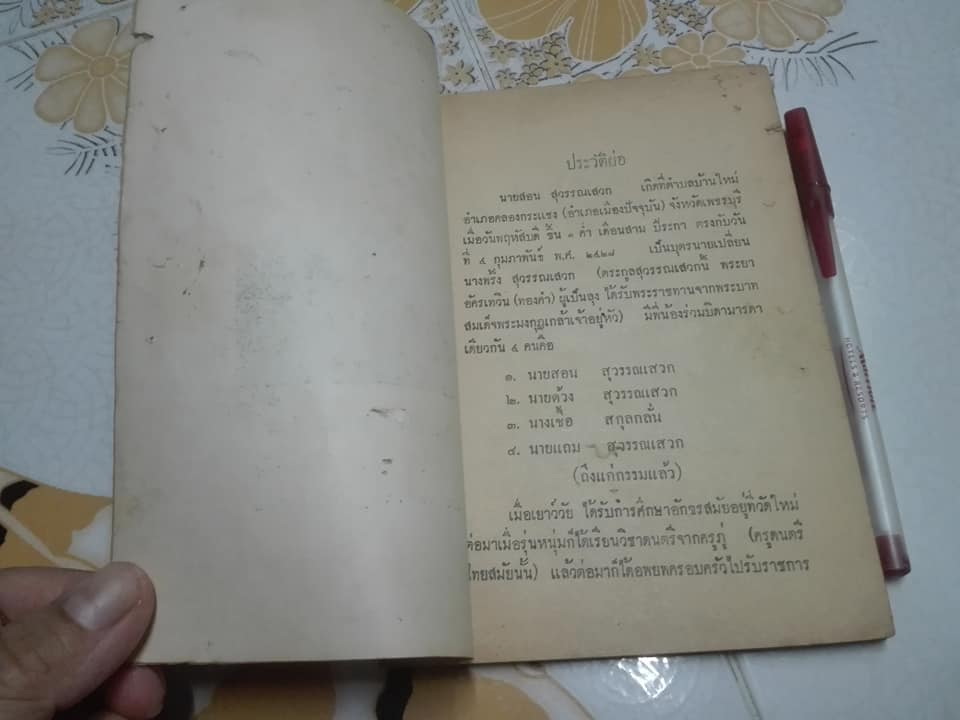 ประวัติย่อ
นายสอน สุวรรณเสวก เกิดที่ตำบลบ้านใหม่
อำเภอคลองกระแชง (อำเภอเมืองปัจจุบัน) จังหวัดเพชรบุรี
เมื่อวันพฤหัสบดี ขึ้น ๑ ค่ำ เดือนสาม ปีระกา ตรงกับวัน
ที่ ๔ กุมภาพันธ์ พ.ศ. ๒๔๒๘ เป็นบุตรนายเปลี่ยน
นางพริ้ง สุวรรณเสวก (ตระกูลสุวรรณเสวกนี้ พระยา
อัศรเทวิน (ทองคำ) ผู้เป็นลุง ได้รับพระราชทานจากพระบาท
สมเด็จพระมงกุฎเกล้าเจ้าอยู่หัว) มีพี่น้องร่วมบิดามารดา
เดียวกัน ๔ คนคือ
๑. นายสอน สุวรรณเสวก
๒. นายด้วง สุวรรณเสวก
๓. นางเชื้อ สกุลกลั่น
๔. นายแถม – สุวรรณเสวก
(ถึงแก่กรรมแล้ว)
เมื่อเยาว์วัย ได้รับการศึกษาอักษรสมัยอยู่ที่วัดใหม่
ต่อมาเมื่อรุ่นหนุ่มก็ได้เรียนวิชาดนตรีจากครูภู่ (ครูดนตรี
ไทยสมัยนั้น) แล้วต่อมาก็ได้อพยพครอบครัวไปรับราชการ
HOTELS & RESORTS